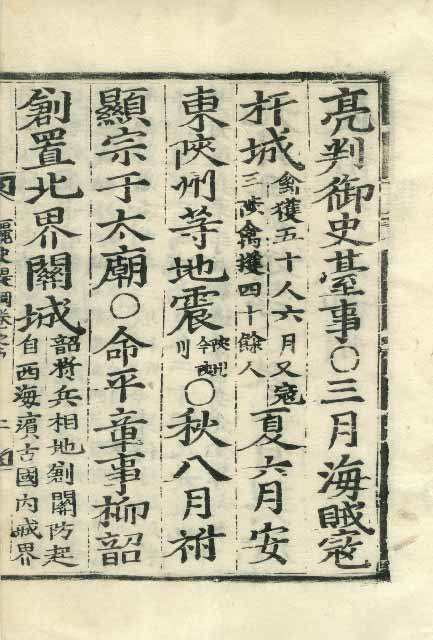 亮判御史臺事○三月海賊寇
杆城
禽獲五十人六月又寇
三陟禽獲四十餘人
夏六月安
東陜州等地震
陜州
今陜川
○秋八月祔
顯宗于太廟○命平章事柳韶
創置北界關城
韶將兵相地創關防起
自西海濱古國內城界
麗史提綱卷之